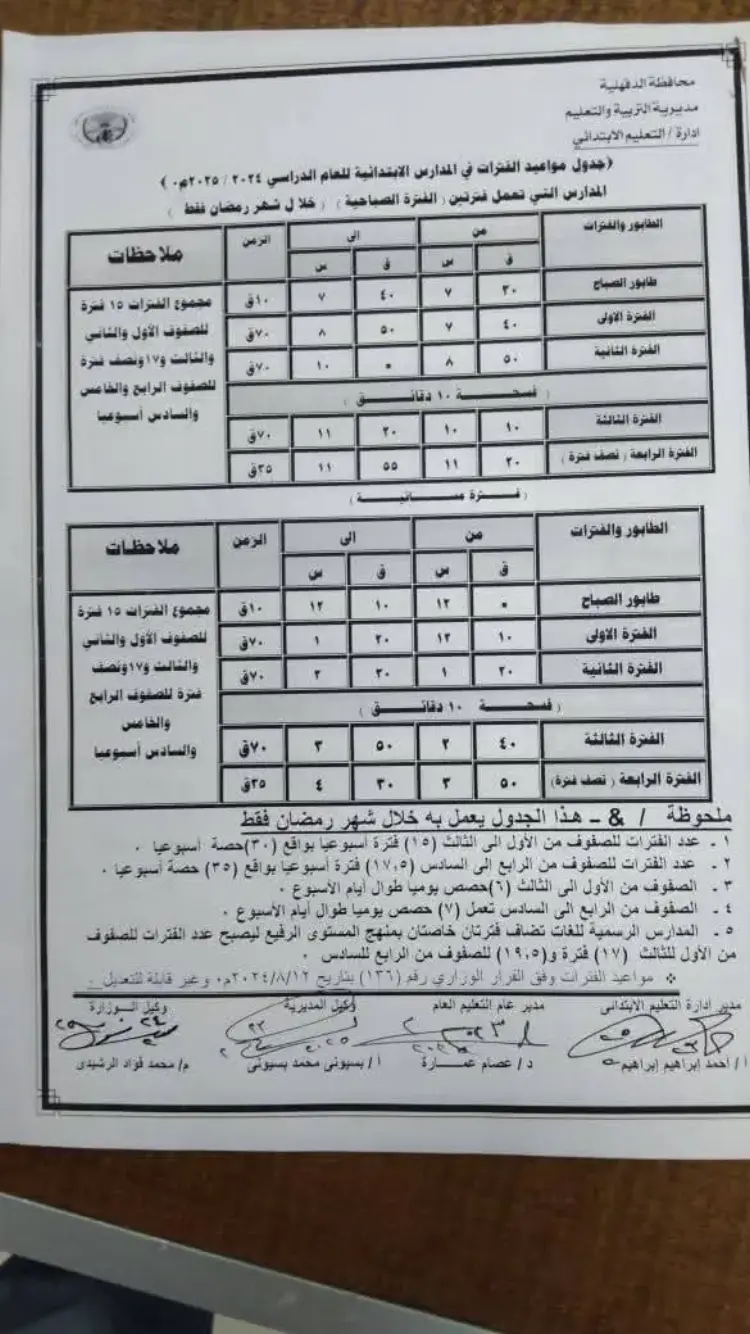 محافظة الدقهلية
مديرية التربية والتعليم
ادارة / التعليم الابتدائي
(جدول مواعيد الفترات في المدارس الابتدائية للعام الدراسي ٢٠٢٤ / ٢٠٢٥م٠ )
المدارس التي تعمل فترتين ( الفترة الصباحية ) ( خلال شهر رمضان فقط )
الطابور والفترات من الى الزمن ملاحظات
ق س ق س
طابور الصباح ٣٠ ٧ ٤٠ ٧ ١٠ق
الفترة الاولى ٤٠ ٧ ٥٠ ٨ ٧٠ق
الفترة الثانية ٥٠ ٨ ٠ ١٠ ٧٠ق
( فسحة ١٠ دقائق )
الفترة الثالثة ١٠ ١٠ ٢٠ ١١ ٧٠ق
الفترة الرابعة ( نصف فترة ) ٢٠ ١١ ٥٥ ١١ ٣٥ق
مجموع الفترات ١٥ فترة
للصفوف الأول والثاني
والثالث و١٧ونصف فترة
للصفوف الرابع والخامس
والسادس أسبوعيا
( فترة مسائية )
الطابور والفترات من الى الزمن ملاحظات
ق س ق س
طابور الصباح ٠ ١٢ ١٠ ١٢ ١٠ق
الفترة الاولى ١٠ ١٢ ٢٠ ١ ٧٠ق
الفترة الثانية ٢٠ ١ ٣٠ ٢ ٧٠ق
( فسحة ١٠ دقائق )
الفترة الثالثة ٤٠ ٢ ٥٠ ٣ ٧٠ق
الفترة الرابعة ( نصف فترة) ٥٠ ٣ ٣٠ ٤ ٣٥ق
مجموع الفترات ١٥ فترة
للصفوف الأول والثاني
والثالث و١٧ونصف
فترة للصفوف الرابع
والخامس
والسادس أسبوعيا
ملحوظة / & ـ هذا الجدول يعمل به خلال شهر رمضان فقط
١ ـ عدد الفترات للصفوف من الأول الى الثالث (١٥) فترة أسبوعيا بواقع (٣٠)حصة أسبوعيا ٠
٢ ـ عدد الفترات للصفوف من الرابع الى السادس (١٧,٥) فترة أسبوعيا بواقع (٣٥) حصة أسبوعيا ٠
٣ ـ الصفوف من الأول الى الثالث (٦)حصص يوميا طوال أيام الأسبوع ٠
٤ ـ الصفوف من الرابع الى السادس تعمل (٧) حصص يوميا طوال أيام الأسبوع ٠
٥ ـ المدارس الرسمية للغات تضاف فترتان خاصتان بمنهج المستوى الرفيع ليصبح عدد الفترات للصفوف
من الأول للثالث (١٧) فترة و(١٩,٥) للصفوف من الرابع للسادس ٠
مواعيد الفترات وفق القرار الوزاري رقم (١٣٦) بتاريخ ٢٠٢٤/٨/١٢م٠ وغير قابلة للتعديل ٠
مدير ادارة التعليم الابتدائى مدير عام التعليم العام وكيل المديرية وكيل الوزارة
أ / احمد إبراهيم إبراهيم د/ عصام عمارة أ / بسيونى محمد بسيونى م/ محمد فؤاد الرشيدى